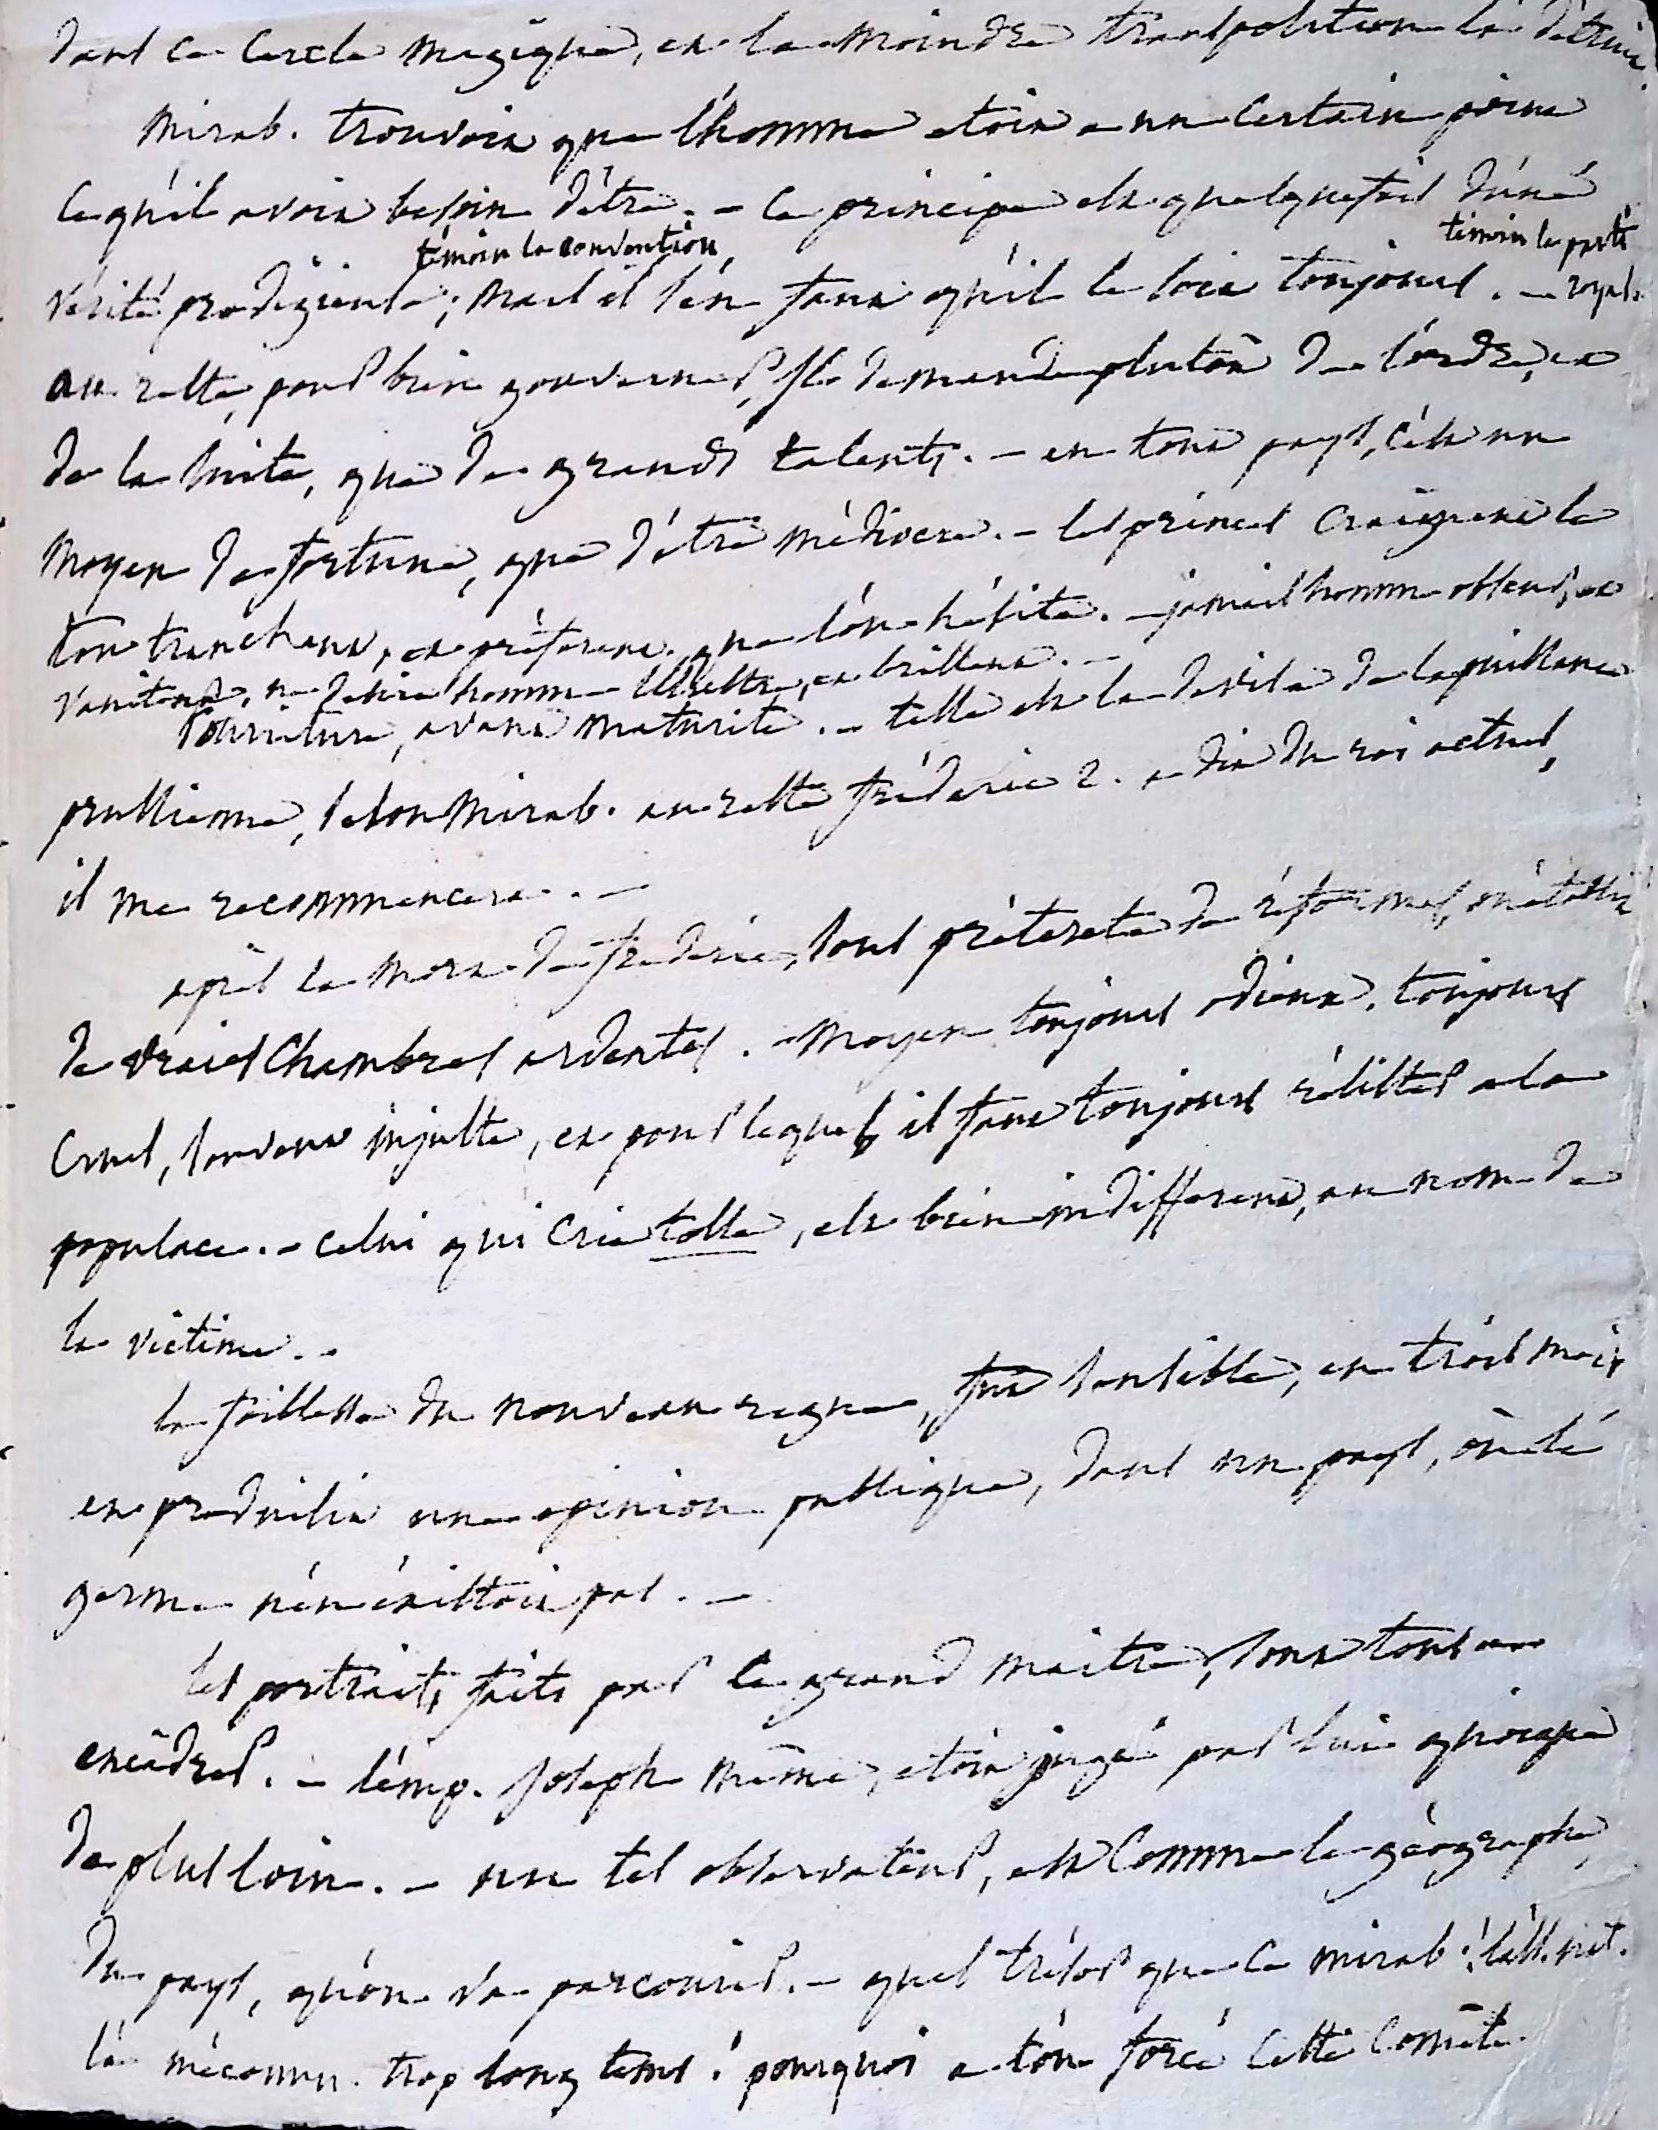 dans ce cercle magique, et la moindre transposition la détruit.
Mirab. trouvoit que l'homme etoit a un certain point
ce qu'il avoit besoin d'être. - ce principe est quelquefois d'une
témoin la convention
témoin le parti
vérité prodigieuse; mais il s'en faut qu'il le soit toujours. - royal.
au reste, pour bien gouverner, il demande plutôt de l'ordre, et
de la suite, que de grands talents. - en tout pays, c'est un
moyen de fortune, que d'être médiocre. - les princes craignent le
ton tranchant, et préferent que l'on hésite. - jamais homme obscur, et
vaniteux, ne desire homme illustre, et brillant. -
Pourriture, avant maturité. - telle est la devise de la puissance
prussienne, selon Mirab. au reste fréderic 2. a dit du roi actuel,
il me recommencera. -
après la mort de frederic, sous prétexte de réformes, on établit
de vraies chambres ardentes. - moyen toujours odieux, toujours
cruel, souvent injuste, et pour lequel, il faut toujours résister a la
populace. - celui qui crie tolle, est bien indifferent, au nom de
la victime. -
la foiblesse du nouveau regne, fut sensible, en trois mois
en produisit une opinion publique, dans un pays, où le
germe n'en éxistoit pas. -
les portraits faits par le grand maitre, sont tous a
encâdrer. - l'emp. Joseph même, etoit jugé par lui quoique
de plus loin. - un tel observateur, est comme le géographe,
du pays, qu'on va parcourir. - quel trésor que ce mirab!
l'a méconnu trop long tems! pourquoi a t'on forcé cette comète